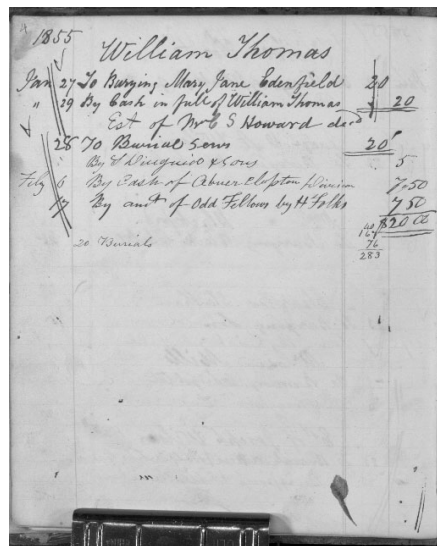 1855
William Thomas
Jan 27 To Burying Mary Jane Edenfield 20
" 29 By Cash in full of William Thomas 20
Est of Mr E S Howard decd
28 To Burial Serv 20
By & Sons 5
Feby 6 By Cash of Abner Clopton 7.50
17 By amt of Odd Fellows by H Folks 7 50
$20 00
40
167
76
283
20 Burials